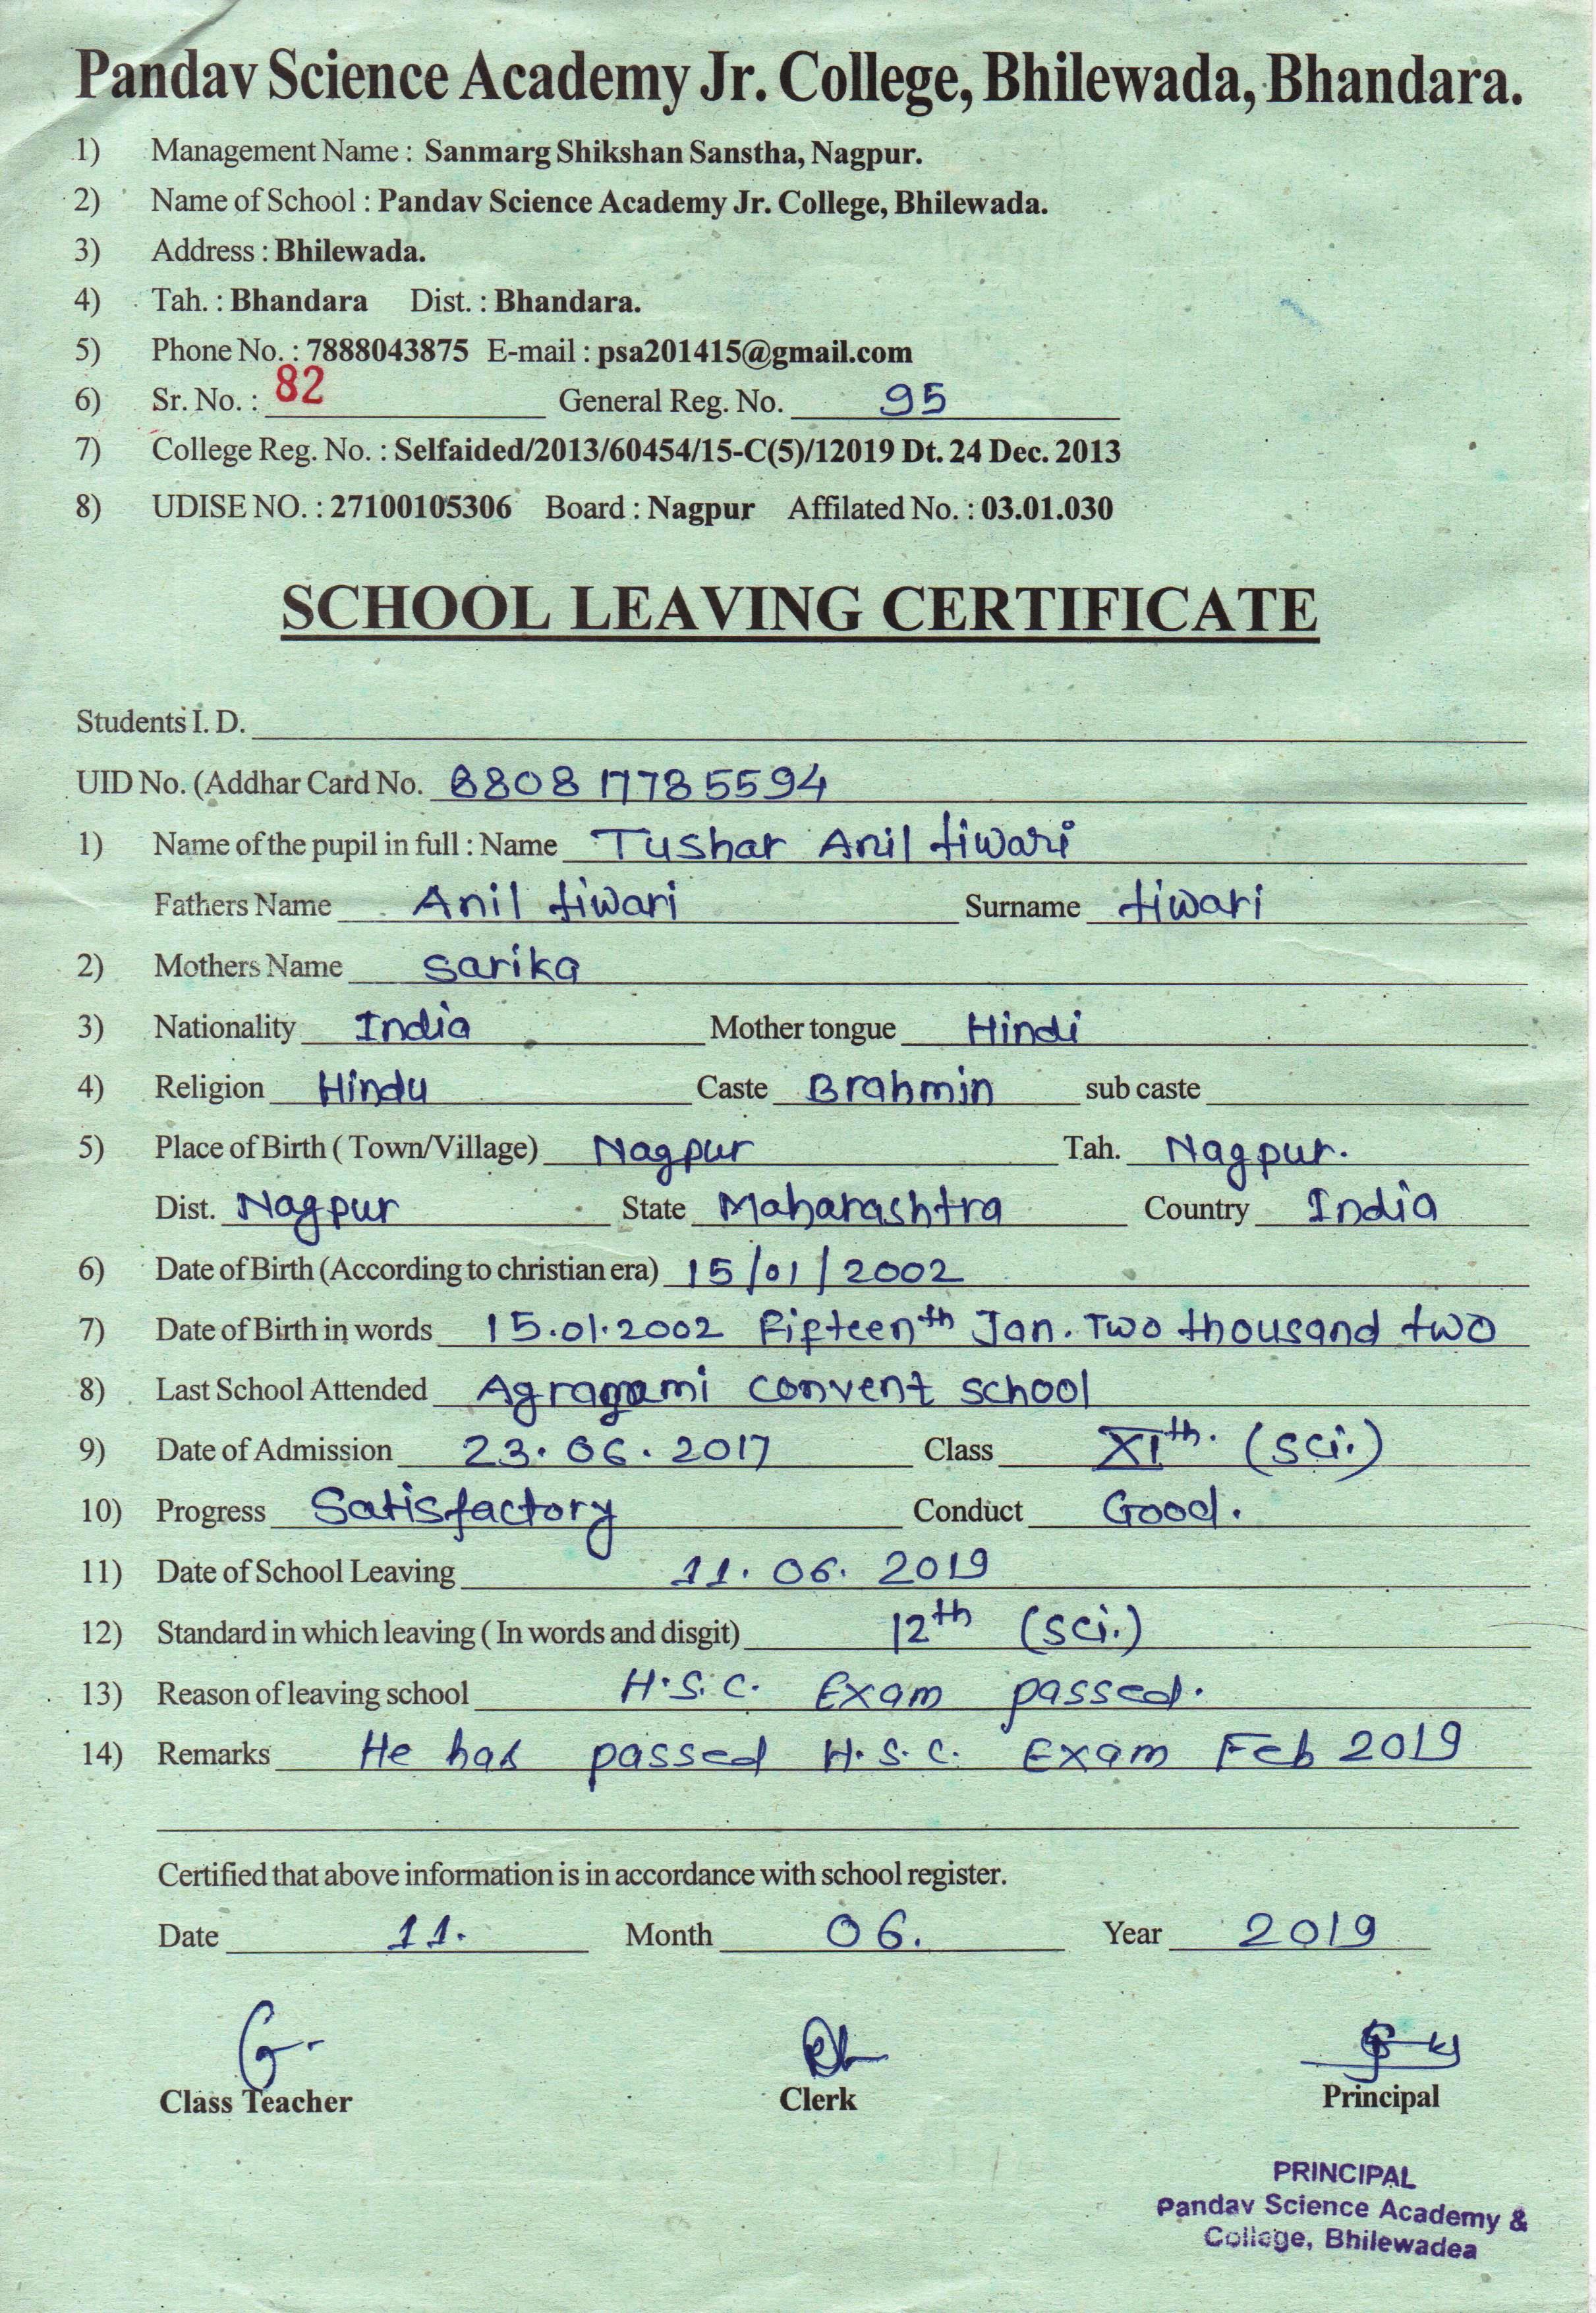 Pandav Science Academy Jr. College, Bhilewada, Bhandara.
1) Management Name : Sanmarg Shikshan Sanstha, Nagpur.
2) Name of School : Pandav Science Academy Jr. College, Bhilewada.
3) Address : Bhilewada.
4) Tah. : Bhandara Dist. : Bhandara.
5) Phone No. : 7888043875 E-mail : psa201415@gmail.com
6) Sr. No. : 82 General Reg. No. 95
7) College Reg. No. : Selfaided/2013/60454/15-C(5)/12019 Dt. 24 Dec. 2013
8) UDISE NO. : 27100105306 Board : Nagpur Affilated No. : 03.01.030
SCHOOL LEAVING CERTIFICATE
Students I. D.
UID No. (Addhar Card No. 8808 1778 5594
1) Name of the pupil in full : Name Tushar Anil tiwari
Fathers Name Anil tiwari Surname tiwari
2) Mothers Name Sarika
3) Nationality India Mother tongue Hindi
4) Religion Hindu Caste Brahmin sub caste
5) Place of Birth ( Town/Village) Nagpur Tah. Nagpur.
Dist. Nagpur State Maharashtra Country India
6) Date of Birth (According to christian era) 15/01/2002
7) Date of Birth in words 15.01.2002 Fifteenth Jan. Two thousand two
8) Last School Attended Agragami convent school
9) Date of Admission 23.06.2017 Class XIth. (Sci.)
10) Progress Satisfactory Conduct Good.
11) Date of School Leaving 11.06.2019
12) Standard in which leaving ( In words and disgit) 12th (Sci.)
13) Reason of leaving school H.S.C. Exam passed.
14) Remarks He has passed H.S.C. Exam Feb 2019
Certified that above information is in accordance with school register.
Date 11. Month 06. Year 2019
Class Teacher Clerk Principal
PRINCIPAL
Pandav Science Academy &
College, Bhilewadea